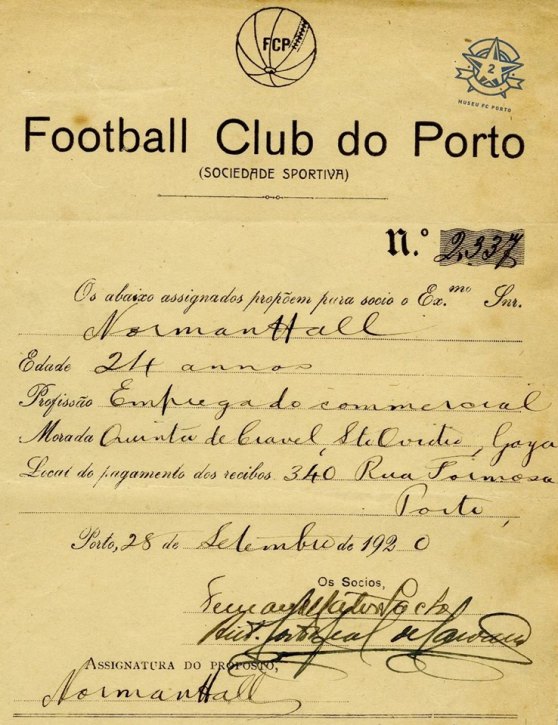 FCP
2
MUSEU FC PORTO
Football Club do Porto
(SOCIEDADE SPORTIVA)
N.º 2.337
Os abaixo assignados propõem para socio o Ex.mo Snr.
Norman Hall
Edade 24 annos
Profissão Empregado commercial
Morada Quinta de Cravel, Sto Ovidio, Gaya
Local do pagamento dos recibos 340 Rua Formosa
Porto,
Porto, 28 de Setembro de 1920
Os Socios,
ASSIGNATURA DO PROPOSTO,
Norman Hall